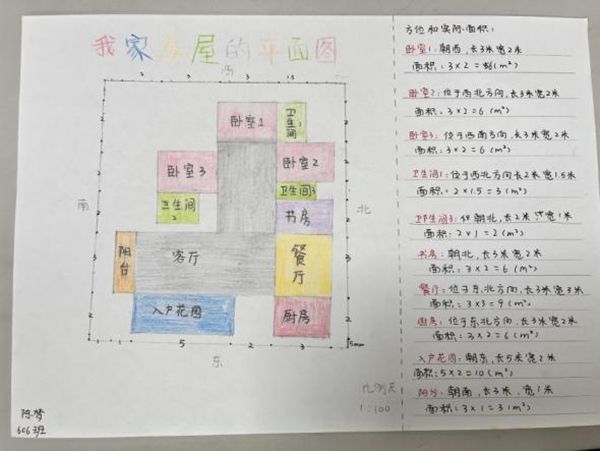 我家房屋的平面图
西
南
北
东
卧室1
卫生间1
卧室2
卧室3
卫生间3
卫生间2
书房
阳台
客厅
餐厅
入户花园
厨房
1 5 2 3 5mm
比例尺
1:100
陈梦
606班
方位和实际面积:
卧室1:朝西,长3米宽2米
面积:3×2=6(m²)
卧室2:位于西北方向,长3米宽2米
面积:3×2=6(m²)
卧室3:位于西南方向,长3米宽2米
面积:3×2=6(m²)
卫生间1:位于西北方向长2米宽1.5米
面积:2×1.5=3(m²)
卫生间3:朝北,长2米宽1米
面积:2×1=2(m²)
书房:朝北,长3米宽2米
面积:3×2=6(m²)
餐厅:位于东北方向,长3米宽3米
面积:3×3=9(m²)
厨房:位于东北方向,长3米宽2米
面积:3×2=6(m²)
入户花园:朝东,长5米宽2米
面积:5×2=10(m²)
阳台:朝南,长3米,宽1米
面积:3×1=3(m²)